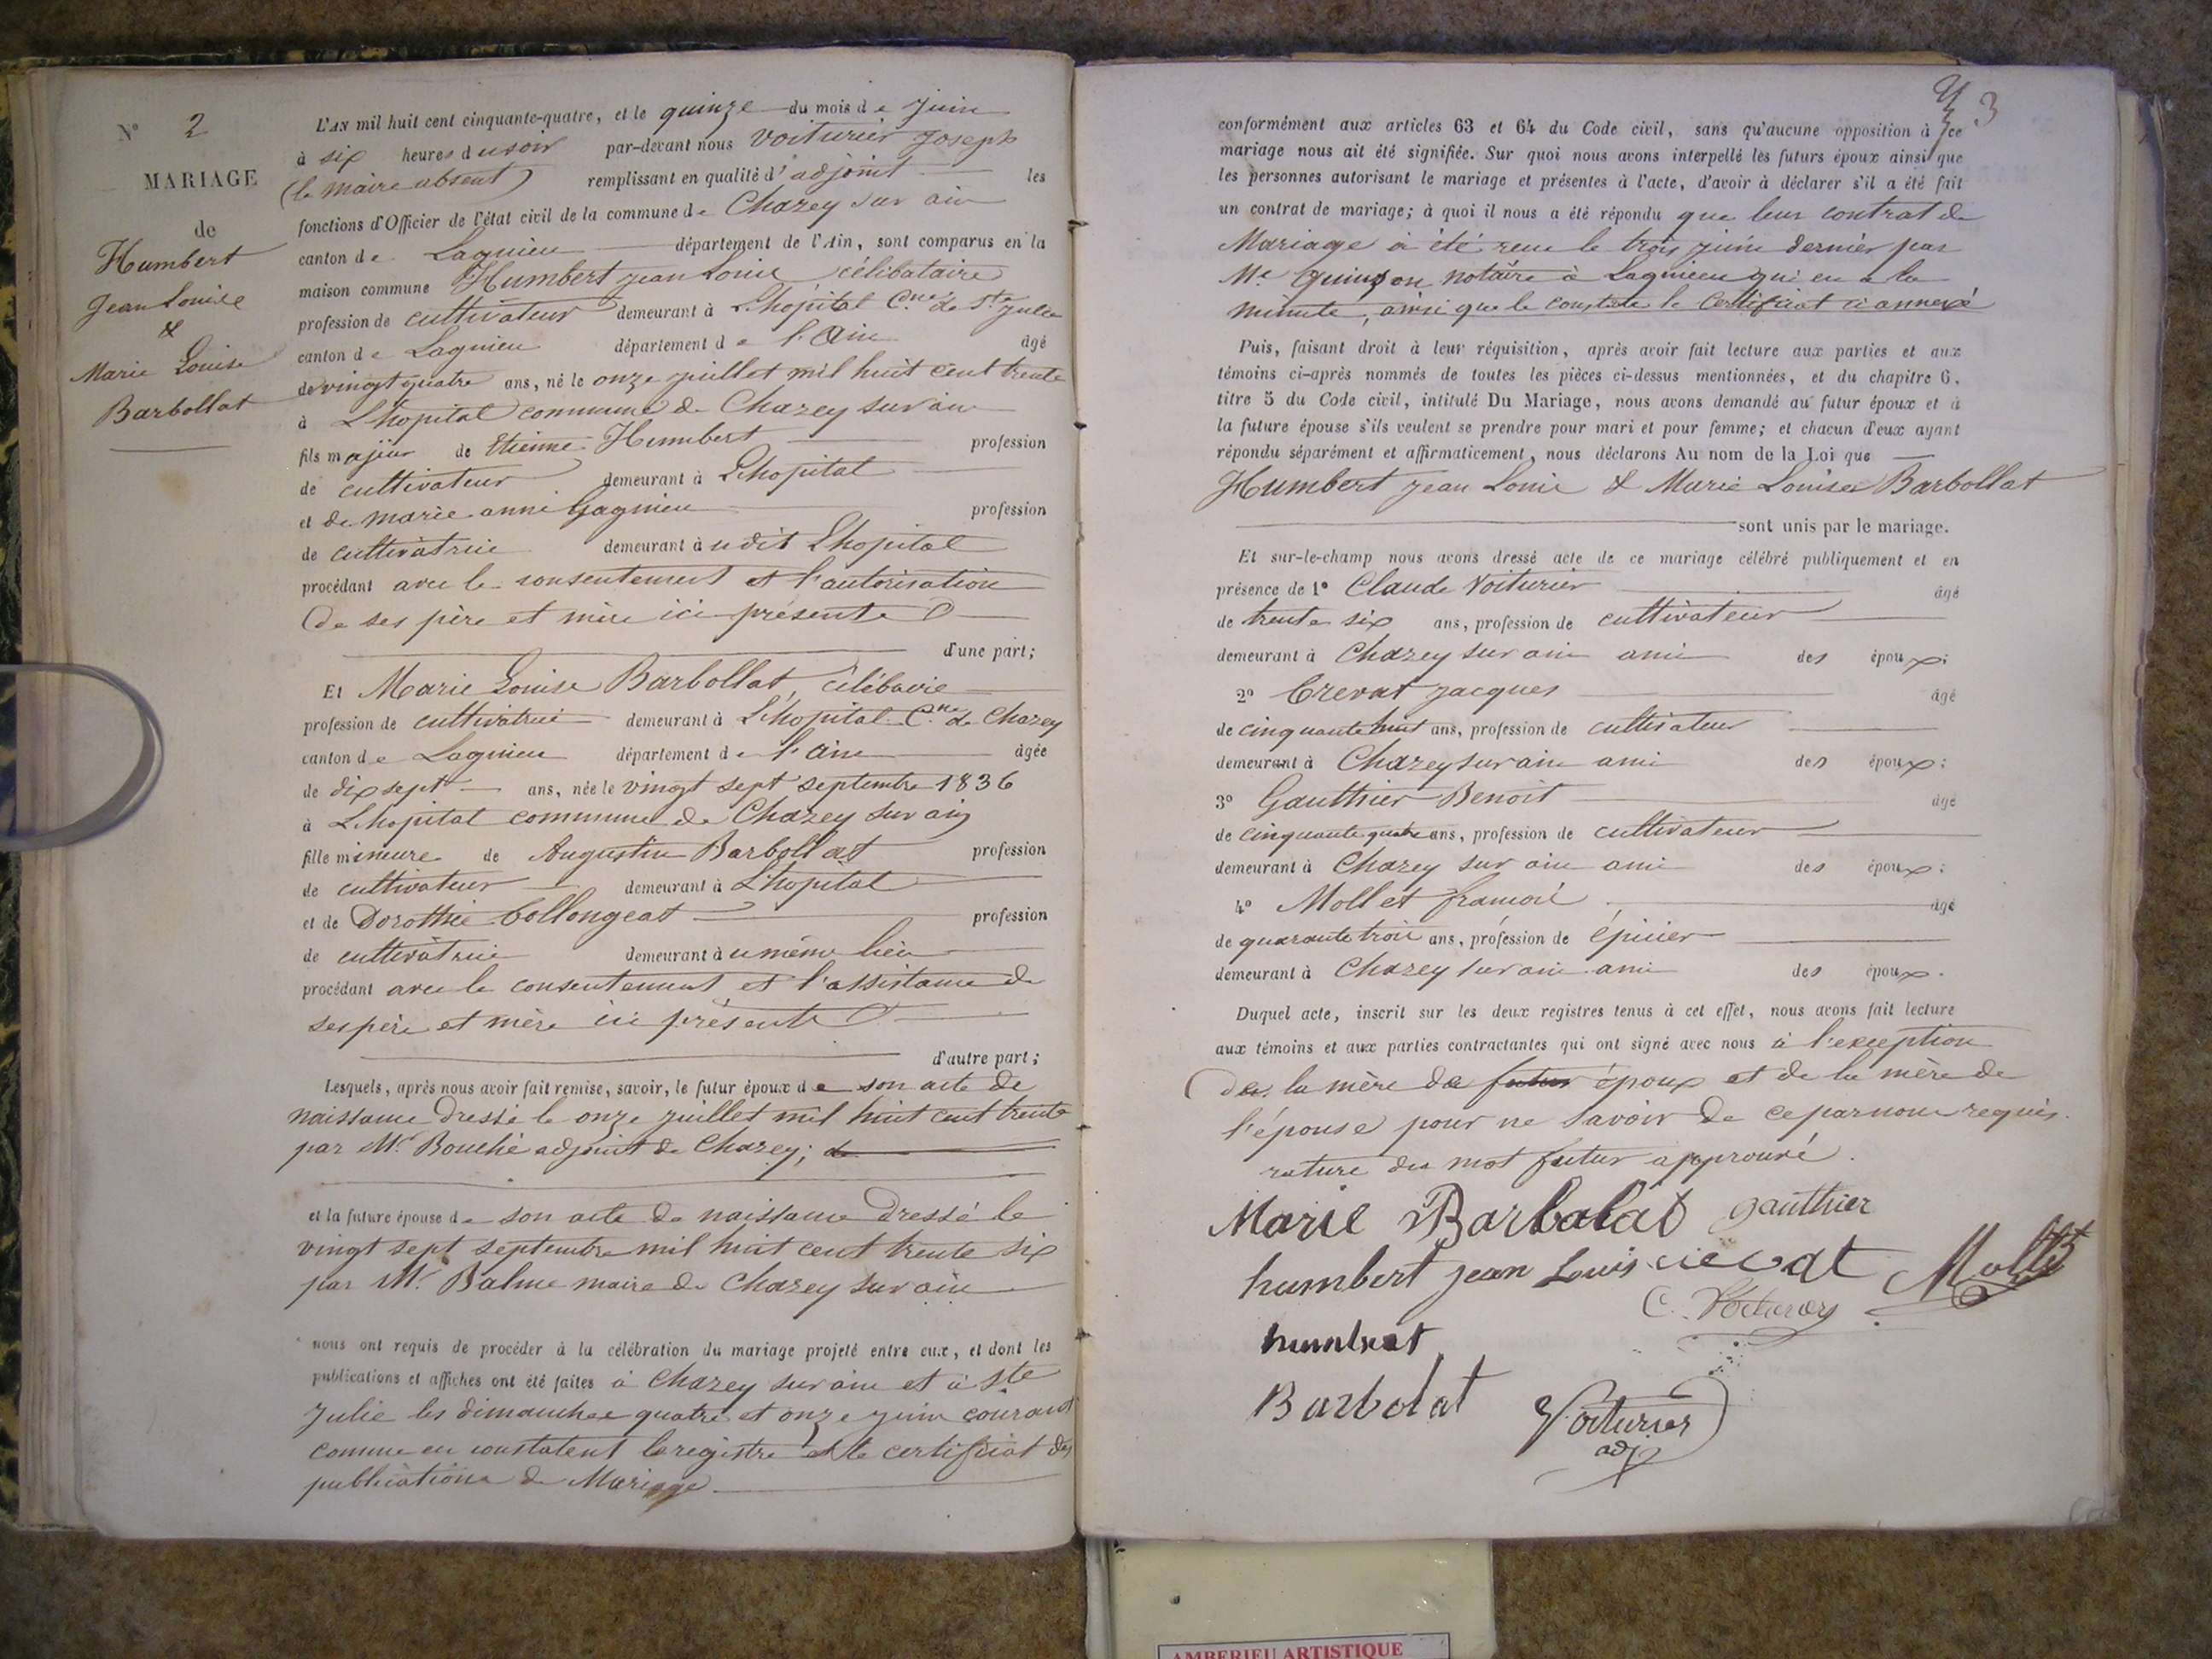 N° 2
MARIAGE
de
Humbert
Jean Louis
&
Marie Louise
Barbollat
L'AN mil huit cent cinquante-quatre, et le quinze du mois de Juin
à six heures du soir par-devant nous Voiturier Joseph
(le maire absent) remplissant en qualité d'adjoint les
fonctions d'Officier de l'état civil de la commune de Chazey sur ain
canton de Lagnieu département de l'Ain, sont comparus en la
maison commune Humbert Jean Louis célibataire
profession de cultivateur demeurant à Lhopital Cne de Ste Julie
canton de Lagnieu département de l'Ain âgé
de vingt quatre ans, né le onze juillet mil huit cent trente
à Lhopital commune de Chazey sur ain
fils majeur de Etienne Humbert profession
de cultivateur demeurant à Lhopital
et de marie anne Gagnieu profession
de cultivatrice demeurant à udit Lhopital
procédant avec le consentement et l'autorisation
de ses père et mère ici présents
d'une part;
Et Marie Louise Barbollat, célibaire
profession de cultivatrice demeurant à Lhopital Cne de Chazey
canton de Lagnieu département de l'ain âgée
de dix sept ans, née le vingt sept septembre 1836
à Lhopital commune de Chazey sur ain
fille mineure de Augustin Barbollat profession
de cultivateur demeurant à Lhopital
et de Dorothée Collongeat profession
de cultivatrice demeurant à u même lieu
procédant avec le consentement et l'assistance de
ses père et mère ici présents
d'autre part;
Lesquels, après nous avoir fait remise, savoir, le futur époux de son acte de
naissance dressé le onze juillet mil huit cent trente
par Mr Bouchié adjoint de Chazey;
et la future épouse de son acte de naissance dressé le
vingt sept septembre mil huit cent trente six
par Mr Balme maire de Chazey sur ain
nous ont requis de procéder à la célébration du mariage projeté entre eux, et dont les
publications et affiches ont été faites à Chazey sur ain et à Ste
Julie les dimanches quatre et onze juin courant
comme en constatent le registre et le certificat des
publications de Mariage
3
conformément aux articles 63 et 64 du Code civil, sans qu'aucune opposition à ce
mariage nous ait été signifiée. Sur quoi nous avons interpellé les futurs époux ainsi que
les personnes autorisant le mariage et présentes à l'acte, d'avoir à déclarer s'il a été fait
un contrat de mariage; à quoi il nous a été répondu que leur contrat de
Mariage a été reçu le trois juin dernier par
Me Quinson notaire à Lagnieu qui en a la
minute, ainsi que le constate le Certificat ci annexé
Puis, faisant droit à leur réquisition, après avoir fait lecture aux parties et aux
témoins ci-après nommés de toutes les pièces ci-dessus mentionnées, et du chapitre 6,
titre 5 du Code civil, intitulé Du Mariage, nous avons demandé au futur époux et à
la future épouse s'ils veulent se prendre pour mari et pour femme; et chacun d'eux ayant
répondu séparément et affirmativement, nous déclarons Au nom de la Loi que
Humbert Jean Louis & Marie Louise Barbollat
sont unis par le mariage.
Et sur-le-champ nous avons dressé acte de ce mariage célébré publiquement et en
présence de 1° Claude Voiturier âgé
de trente six ans, profession de cultivateur
demeurant à Chazey sur ain ami des époux;
2° Crevat Jacques âgé
de cinquante huit ans, profession de cultivateur
demeurant à Chazey sur ain ami des époux;
3° Gauthier Benoit âgé
de cinquante quatre ans, profession de cultivateur
demeurant à Chazey sur ain ami des époux;
4° Mollet françois âgé
de quarante trois ans, profession de épicier
demeurant à Chazey sur ain ami des époux.
Duquel acte, inscrit sur les deux registres tenus à cet effet, nous avons fait lecture
aux témoins et aux parties contractantes qui ont signé avec nous à l'exception
de la mère de futur époux et de la mère de
l'épouse pour ne savoir de ce par nous requis.
rature du mot futur approuvé.
Marie Barbalat gauthier
humbert jean Louis crevat Mollet
C. Voiturier
humbert
Barbolat Voiturier
adj
AMBERIEU ARTISTIQUE